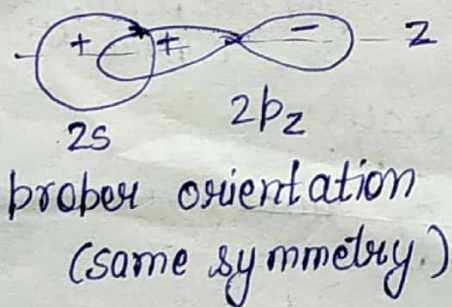 + + - z
2s 2pz
proper orientation
(same symmetry.)